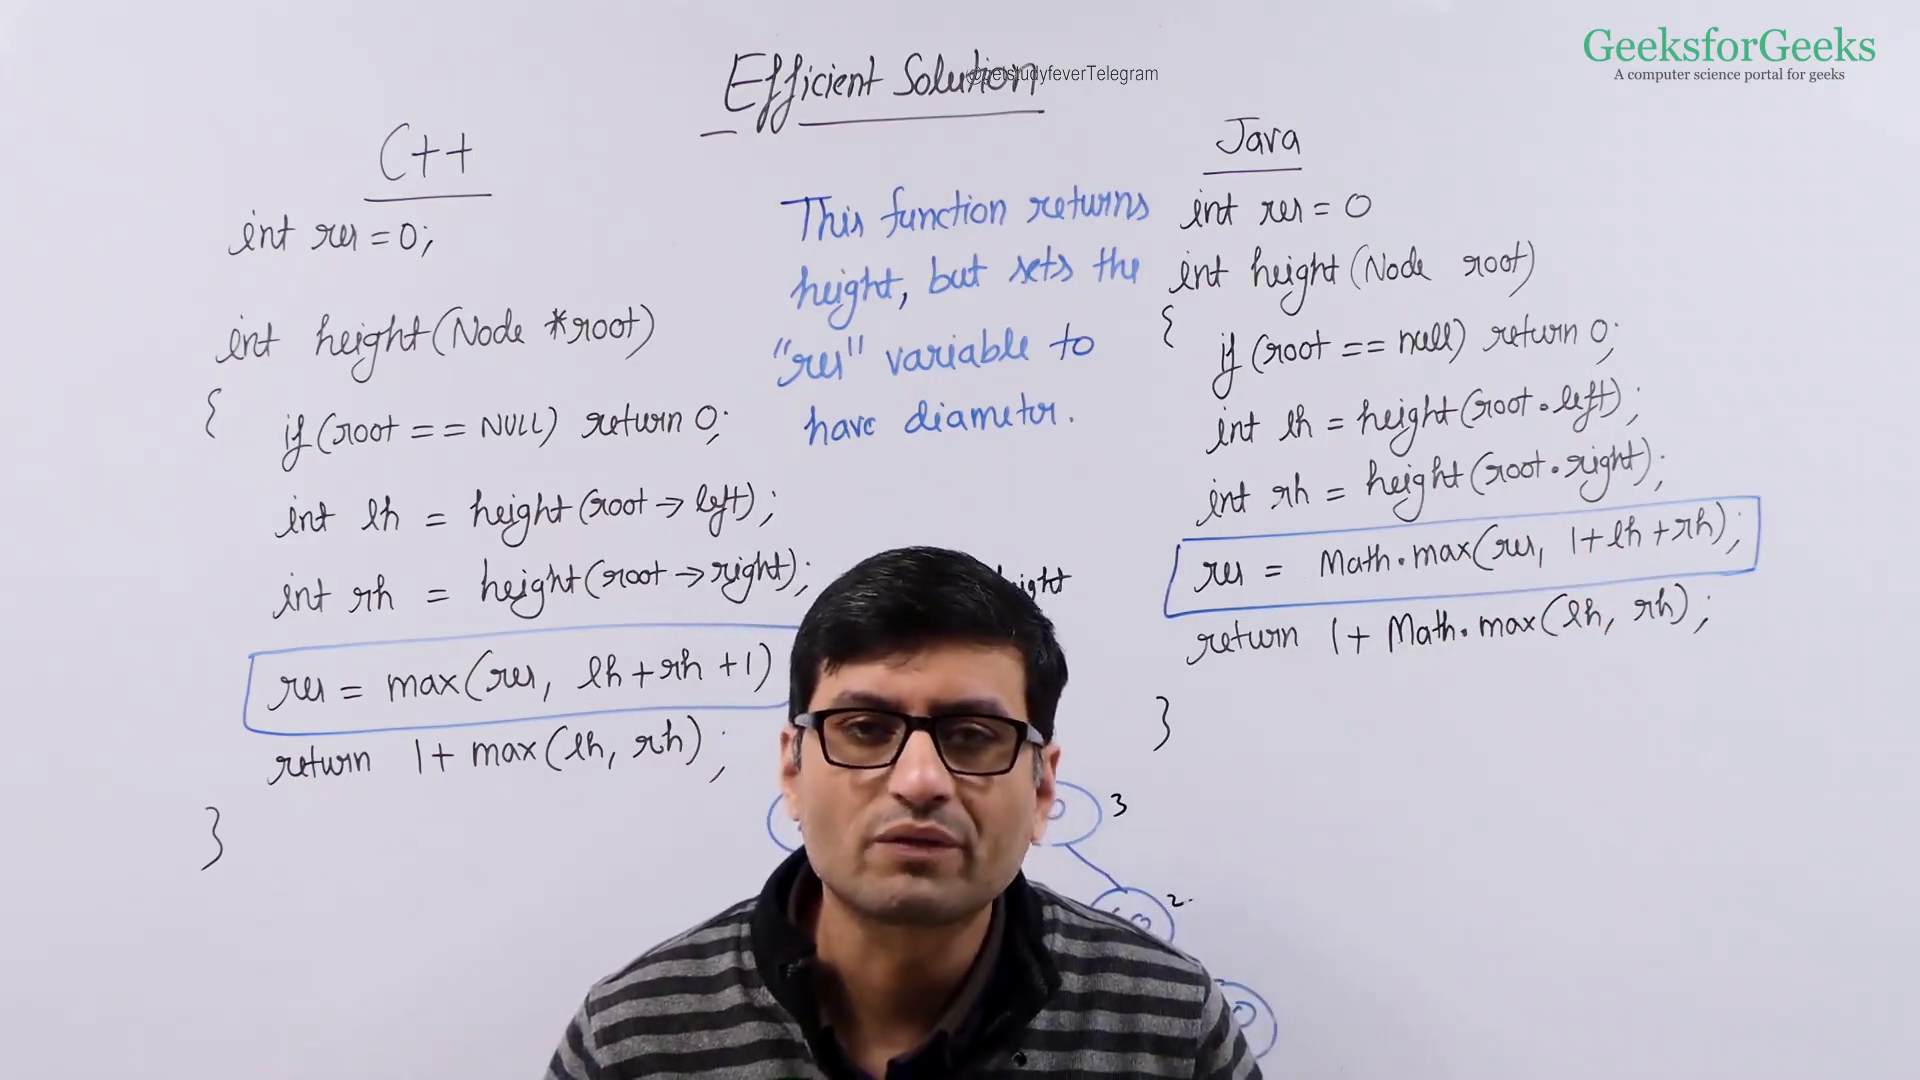 GeeksforGeeks
A computer science portal for geeks
Efficient Solution
@getstudyfeverTelegram
C++
int res = 0;
int height(Node *root)
{
if(root == NULL) return 0;
int lh = height(root → left);
int rh = height(root → right);
res = max(res, lh + rh + 1)
return 1 + max(lh, rh);
}
This function returns
height, but sets the
"res" variable to
have diameter.
Java
int res = 0
int height(Node root)
{
if(root == null) return 0;
int lh = height(root.left);
int rh = height(root.right);
res = Math.max(res, 1+lh+rh);
return 1+ Math.max(lh, rh);
}
3
2